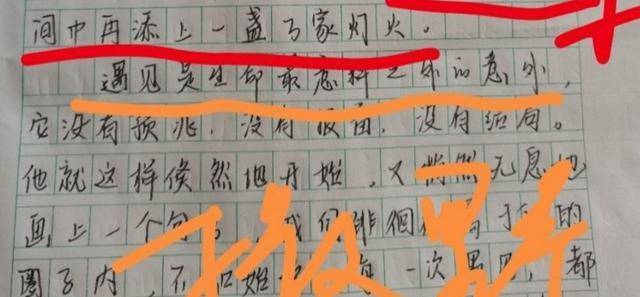 间中再添上一盏万家灯火。
遇见是生命最意料之外的意外，
它没有预兆，没有设，没有结局。
他就这样倏然地开始，又悄然无息地
画上一个句，我们徘徊于的
圈子内，不知始，一次遇见，都